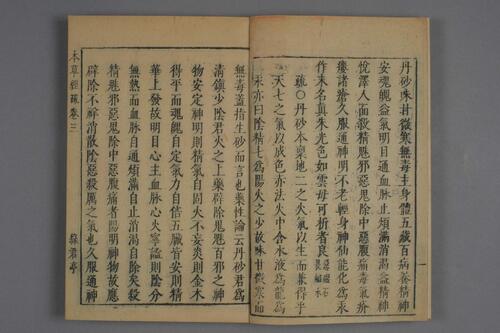 丹砂味甘微寒無毒主身體五藏百病養精神
安魂魄益氣明目通血脉止煩滿消渴益精神
悅澤人面殺精魅邪惡鬼除中惡腹痛毒氣疥
瘻諸瘡久服通神明不老輕身神仙能化為汞
作末名真朱光色如雲母可折者良
疏丹砂本稟地二之火氣以生而兼得乎
天七之氣以成色亦法火中含水液為龍為
汞亦曰陰精七為陽火之少故味甘微寒而
無毒蓋指生砂而言也藥性論云丹砂君為
清鎮少陰君火之上藥辟除鬼魅百邪之神
物安定神明則精氣自固火不妄炎則金木
得平而魂魄自定氣力自倍五臟皆安則精
華上發故明目心主血脉心火寧謐則陰分
無熱而血脉自通煩滿自止消渴自除矣殺
精魅邪惡鬼除中惡腹痛者陽明神物故應
辟除不祥消散陰惡殺厲之氣也久服通神
本草經疏卷三
綠君亭